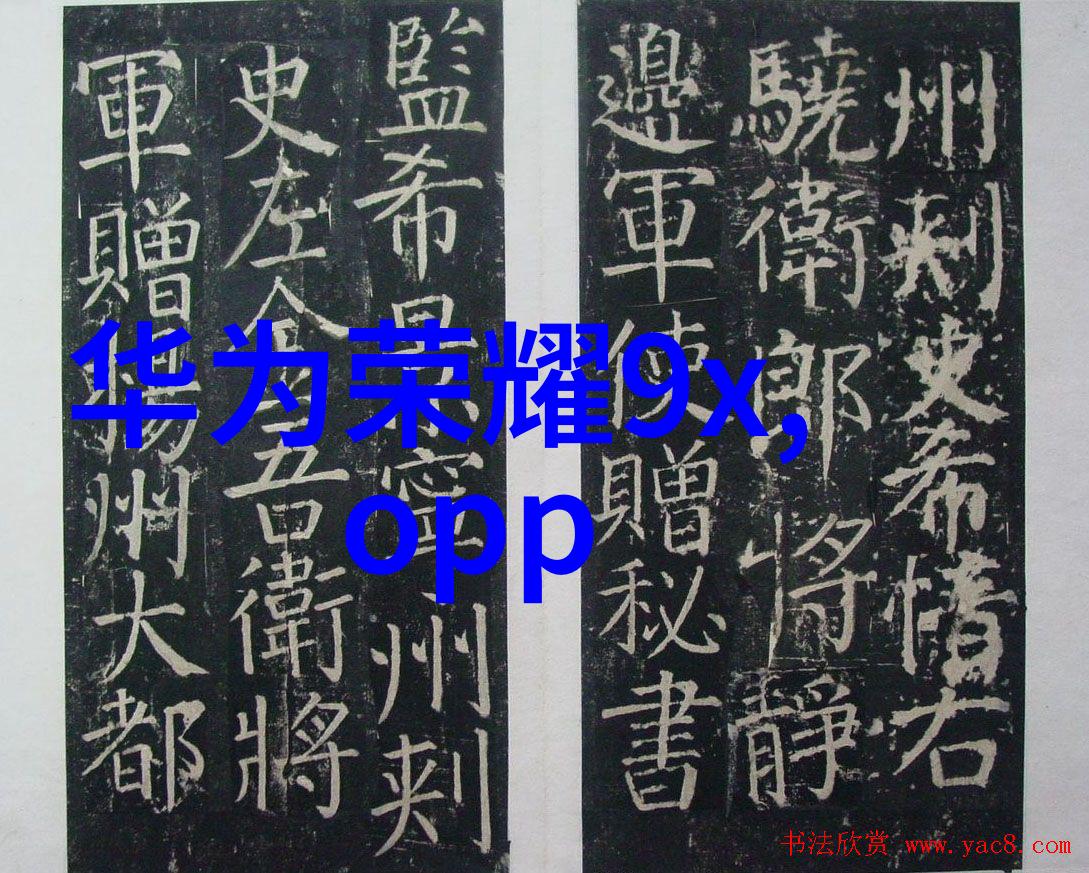 州刺史希愔右
驍衛郎將靜
邊軍使贈秘書
監希景寧州刺
史左金吾衛將
軍贈揚州大都
华为荣耀9x,
opp
书法欣赏 www.yac8.com